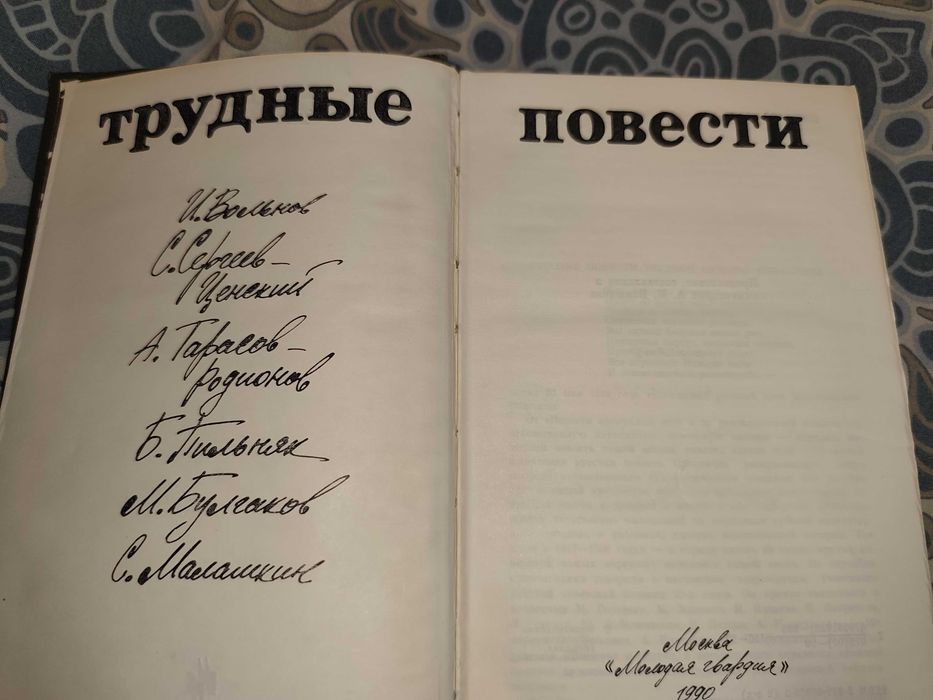 трудные повести
И. Вольнов
С. Сергеев-
Ценский
А. Тарасов-
Родионов
Б. Пильняк
М. Булгаков
С. Малашкин
Москва
«Молодая гвардия»
1990